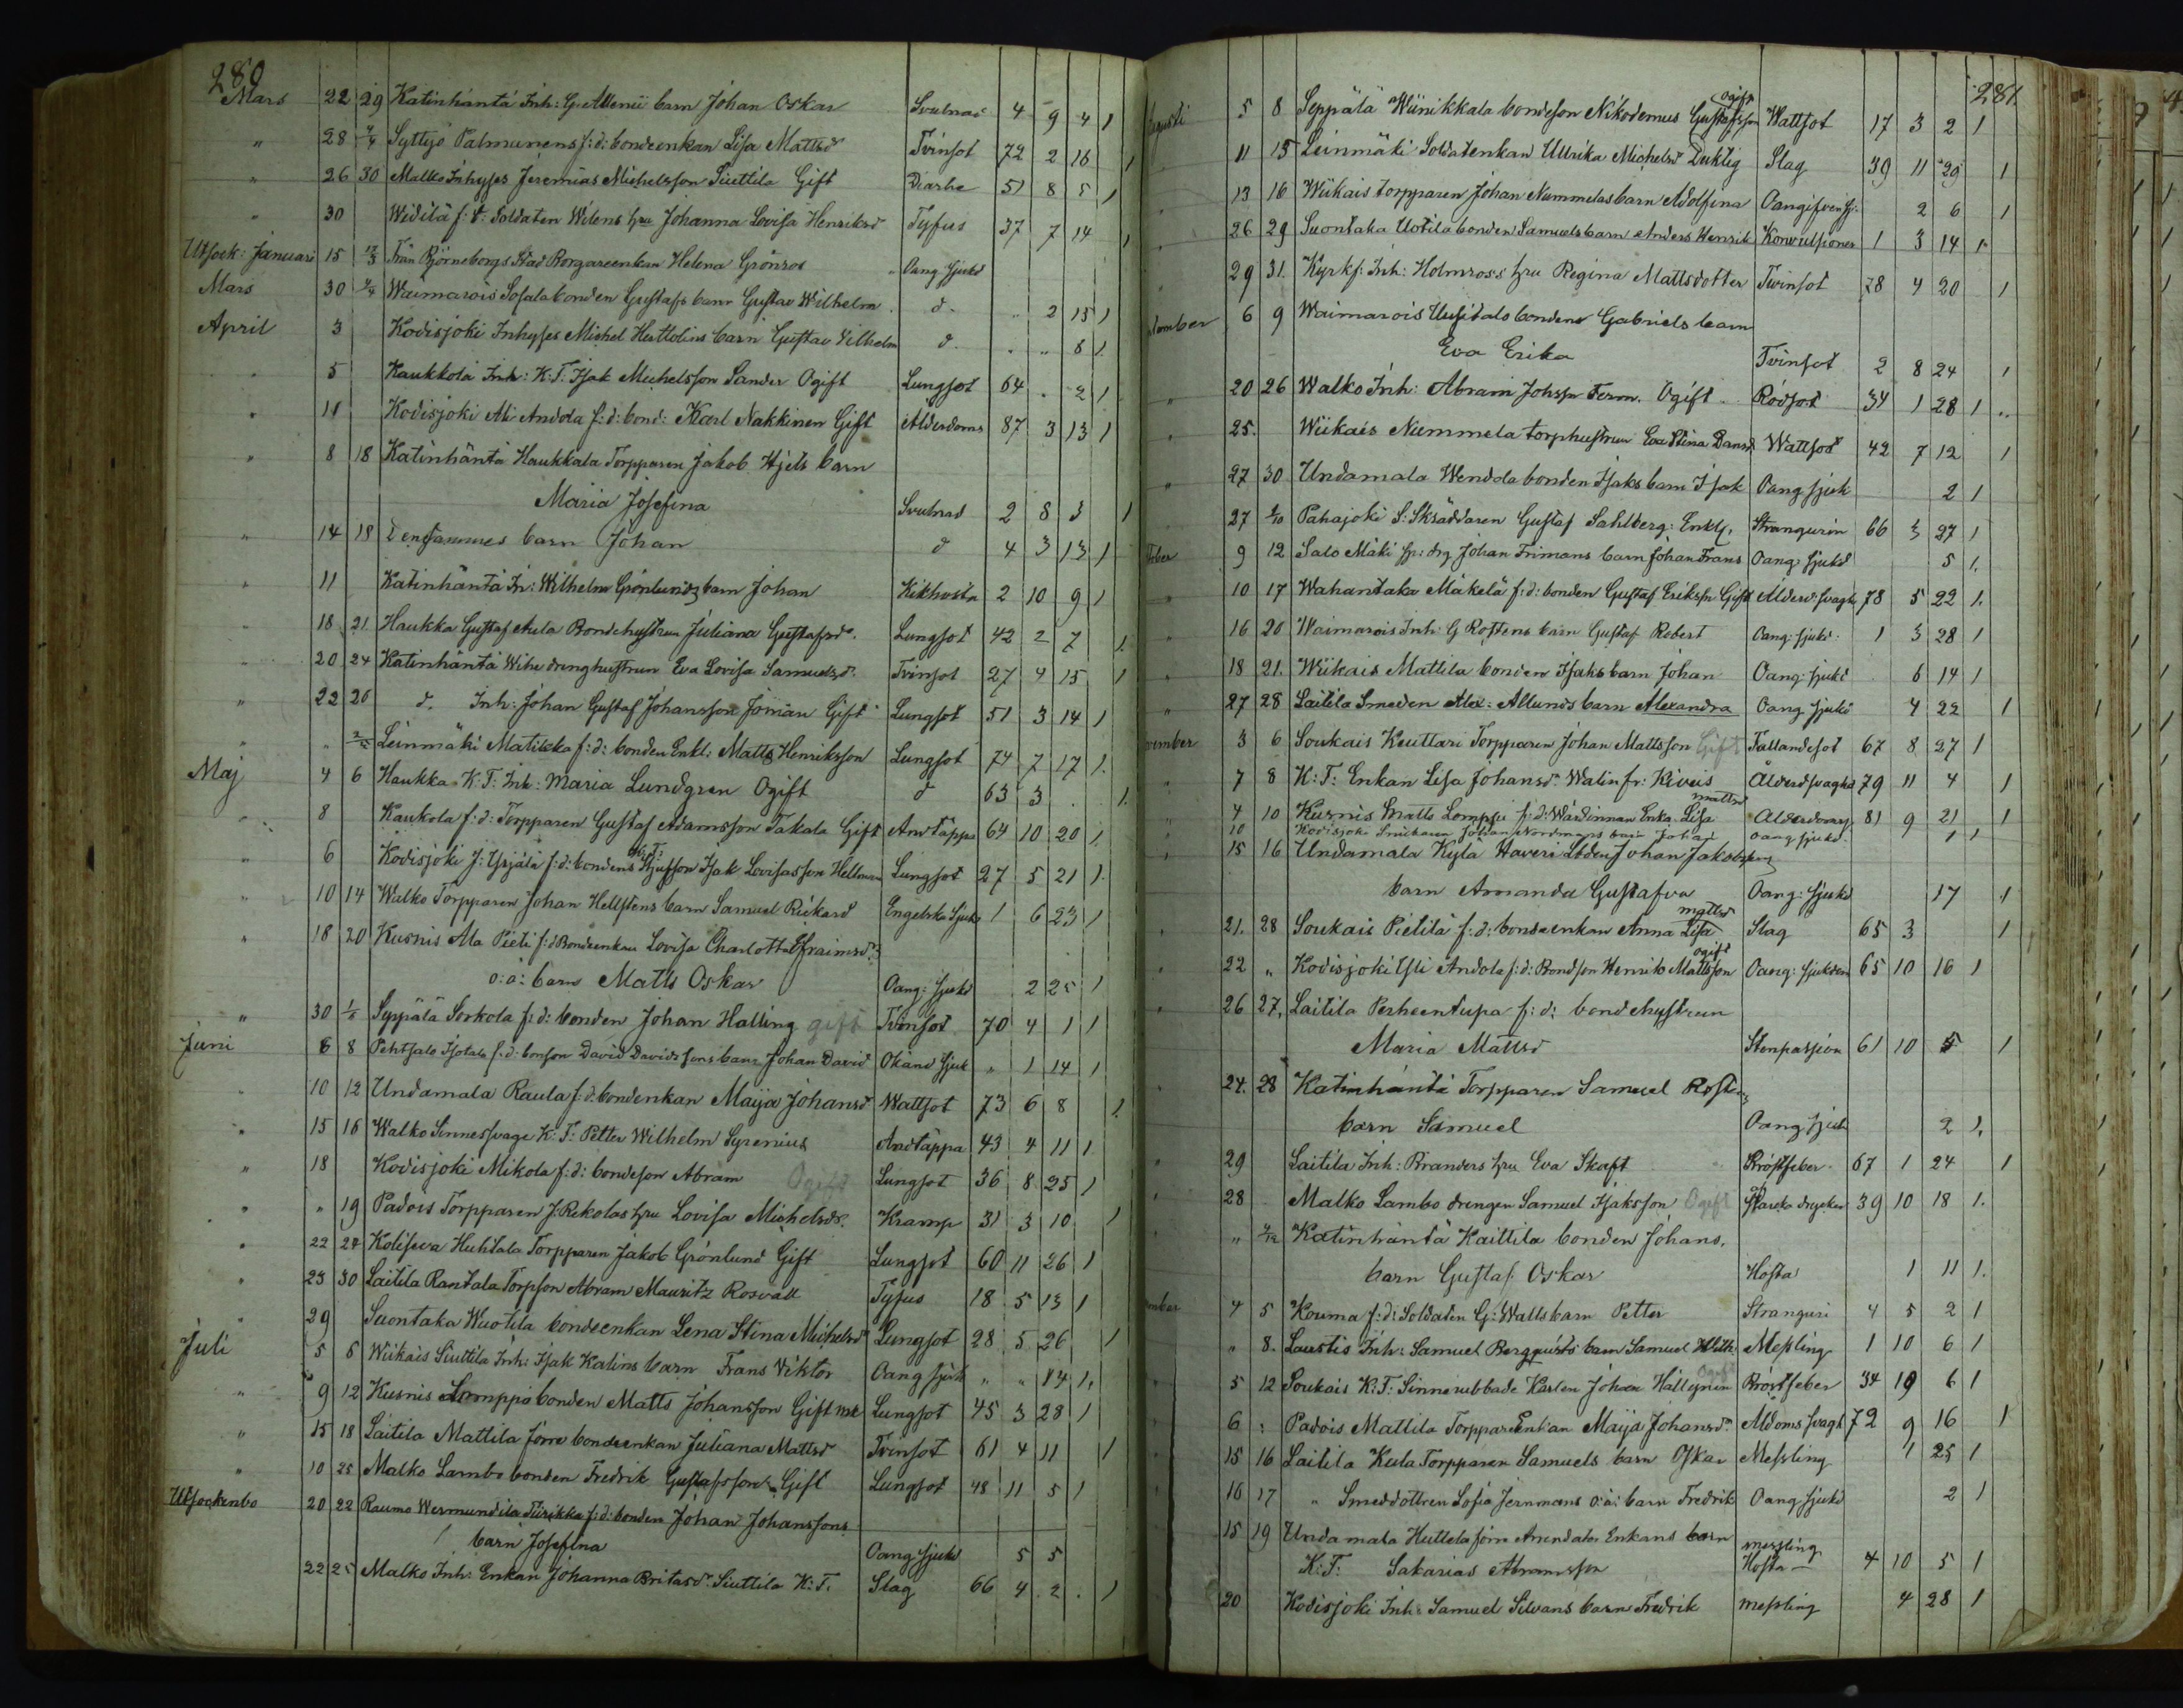 280
Mars 22 29 Katinhäntä Inh: G. Allenii barn Johan Oskar Svulnad 4 9 4 1
" 28 4/4 Syttyö Palmunens f:d: bondeenkan Lisa Mattsdr Tvinsot 72 2 16 1
" 26 30 Malko Inhyses Jeremias Michelsson Siuttila Gift Diarhe 51 8 5 1
" 30 Widilä f:d: Soldaten Wilens hru Johanna Lovisa Henriksd Tyfus 37 7 14 1
Utsock: Januari 15 Från Björneborgs Stad Borgareenkan Helena Grönroos Oang. sjukd
Mars 30 2/4 Waimarois Sosala bonden Gustafs barn Gustav Wilhelm d. " 2 15 1
April 3 Kodisjoki Inhyses Michel Hertlolins barn Gustav Vilhelm d. " " 8 1
" 5 Kaukkola Inh: K:F: Isak Michelsson Sander Ogift Lungsot 64 . 2 1
" 11 Kodisjoki Ali Andola f:d: bond: Karl Nakkinen Gift Ålderdoms 87 3 13 1
" 8 18 Katinhäntä Haukkala Torpparen Jakob Hjelts barn
Maria Josefina Svulnad 2 8 3 1
" 14 18 Densammes barn Johan d 4 3 13 1
" 11 Katinhäntä In: Wilhelm Grönlunds barn Johan Kikhosta 2 10 9 1
" 18 21 Haukka Gustaf Anla Bondehustrun Juliana Gustafsdr Lungsot 42 2 7 1
20 24 Katinhäntä Wihu drenghustrun Eva Lovisa Samuelsdr Tvinsot 27 4 15 1
" 22 26 d. Inh: Johan Gustaf Johansson Jöman Gift Lungsot 51 3 14 1
" " 2/5 Leinmäki Matikka f:d: bonden Enkl: Matts Henriksson Lungsot 74 7 17 1
Maj 4 6 Haukka K:F: Inh: Maria Lundgren Ogift d 63 3 . 1
8 Kaukola f:d: Torpparen Gustaf Adamsson Takala Gift Andtäppa 64 10 20 1
6 Kodisjoki J: Yrjälä f:d: bondens Isak Lovisasson Hellman Lungsot 27 5 21 1
10 14 Walko Torpparen Johan Hellstens barn Samuel Rickard Engelska Sjuk 1 6 23 1
" 18 20 Kusnis Ala Pieti f:d Bondeenkan Lovisa Charlotta Efraimsdr
o:ä: barn Matts Oskar Oang: sjukd 2 25 1
" 30 1/6 Seppälä Sorkola f:d: bonden Johan Halling gift Tvinsot 70 4 1 1
Juni 6 8 Pehtsalo Isotalo f:d: bonson David Davidssons barn Johan David Okänd Sjuk " 1 14 1
10 12 Undamala Raula f:d: bondenkan Maija Johansd Wattsot 73 6 8 1
" 15 16 Walko Sinnessvage K:F: Petter Wilhelm Syrenius Andtäppa 43 4 11 1
" 18 Kodisjoki Mikola f:d: bondeson Abram Ogift Lungsot 36 8 25 1
" " 19 Padois Torpparen J. Rekolas hru Lovisa Michelsdr Kramp 31 3 10 1
" 22 27 Kolisova Huhtala Torpparen Jakob Grönlund Gift Lungsot 60 11 26 1
" 23 30 Laitila Rantala Torpson Abram Mauritz Rosvall Tyfus 18 5 13 1
" 29 Suontaka Wuotila bondeenkan Lena Stina Michelsd Lungsot 28 5 26 1
Juli 5 6 Wiikais Siuttila Inh: Isak Kalins barn Frans Viktor Oang sjuk " " 14 1
" 9 12 Kusnis Lomppo bonden Matts Johansson Gift Lungsot 45 3 28 1
" 15 18 Laitila Mattila förre bondeenkan Juliana Mattsd Tvinsot 61 4 11 1
" 10 25 Malko Lambo bonden Fredrik Gustafsson Gift Lungsot 48 11 5 1
Utsockenbo 20 22 Raumo Wermundila Türikka f:d: bonden Johan Johanssons
barn Josefina Oang sjukd 5 5
22 25 Malko Inh: Enkan Johanna Britasdr Siuttila K:F. Slag 66 4 2 . 1
281
ugusti 5 8 Seppälä Wiinikkala bondeson Nikodemus Gustafsson Ogift Wattsot 17 3 2 1
11 15 Leinmäki Soldatenkan Ullrika Michelsd Duktig Slag 39 11 29 1
13 16 Wiikais torpparen Johan Nummelas barn Adolfina Oangifven sj. 2 6 1
26 29 Suontaka Uotila bonden Samuels barn Anders Henrik Konvulsioner 1 3 14 1
29 31. Kyrkj: Inh: Holmross hru Regina Mattsdotter Tvinsot 28 4 20 1
tember 6 9 Waimarois Uusitalo bonden Gabriels barn
Eva Erika Tvinsot 2 8 24 1
" 20 26 Walko Inh: Abram Johsson Ferm. Ogift Rödsot 34 1 28 1
" 25. Wiikais Nummela torphustrun Eva Stina Dansd Wattsot 42 7 12 1
" 27 30 Undamala Wendola bonden Isaks barn Isak Oang sjuk 2 1
27 2/10 Pahajoki S: Skräddaren Gustaf Sahlberg: Enkl. Strangurin 66 3 27 1
tober 9 12 Salo Mäki sp: drg Johan Frimans barn Johan Frans Oang. sjukd 5 1
" 10 17 Wahantaka Mäkelä f:d: bonden Gustaf Eriksson Gift Ålderd: svaghe 78 5 22 1
" 16 20 Waimarois Inh: G Rostens barn Gustaf Robert Oang: sjukd. 1 3 28 1
18 21. Wiikais Mattila bonden Isaks barn Johan Oang: sjukd . 6 14 1
" 27 28 Laitila Smeden Alex: Allunds barn Alexandra Oang. sjukd 4 22 1
vember 3 6 Soukais Keuttari Torpparen Johan Mattsson Gift Fallandesot 67 8 27 1
" 7 8 K:F: Enkan Lisa Johansdr Walin fr: Kiveis Ålderdsvaghd 79 11 4 1
" 4 10 Kusnis Matts Lomppu f:d: Wärdinnan Enka Lisa Mattsd Ålderdoms 81 9 21 1
10 Kodisjoki Johan Nordmans barn Johan Oang sjukd. 1 1
15 16 Undamala Kylä Haveri Johan Jakobssons
barn Amanda Gustafva Oang: sjukd 17 1
21. 28 Soukais Pietilä f:d: bondeenkan Anna Lisa Mattsd Slag 65 3 1
22 " Kodisjoki Yli Andola f:d: Bondson Henrik Mattsson ogift Oang: sjukdom 65 10 16 1
26 27. Laitila Perheentupa f:d: bondehustrun
Maria Mattsd Stenpassion 61 10 5 1
24. 28 Katinhäntä Torpparen Samuel Rostens
barn Samuel Oang sjuk 2 1
29 Laitila Inh: Branders hru Eva Skaft Bröstfeber 67 1 24 1
28 Malko Lambo drengen Samuel Isaksson Ogift Starka drycker 39 10 18 1
" 2/12 Katinhäntä Kaittila bonden Johans.
barn Gustaf Oskar Hosta 1 11 1
mber 4 5 Kouma f:d: Soldaten G: Walls barn Petter Stranguri 4 5 2 1
" 8. Laustis Inh: Samuel Bergquists barn Samuel Messling 1 10 6 1
5 12 Soukais K:F: Sinnerubbade Karlen Johan Hällgren Ogift Bröstfeber 34 10 6 1
6 : Padois Mattila Torppareenkan Maija Johansdr Åldoms svagh 72 9 16 1
15 16 Laitila Kula Torpparen Samuels barn Oskar Messling 1 25 1
16 17 " Smeddottren Sofia Jernmans o:ä: barn Fredrik Oang sjukd 2 1
15 19 Undamala Huttala förre Arrendator Enkans barn
K:F: Sakarias Abramsson messling Hosta 4 10 5 1
20 Kodisjoki Inh: Samuel Silvans barn Fredrik messling 4 28 1